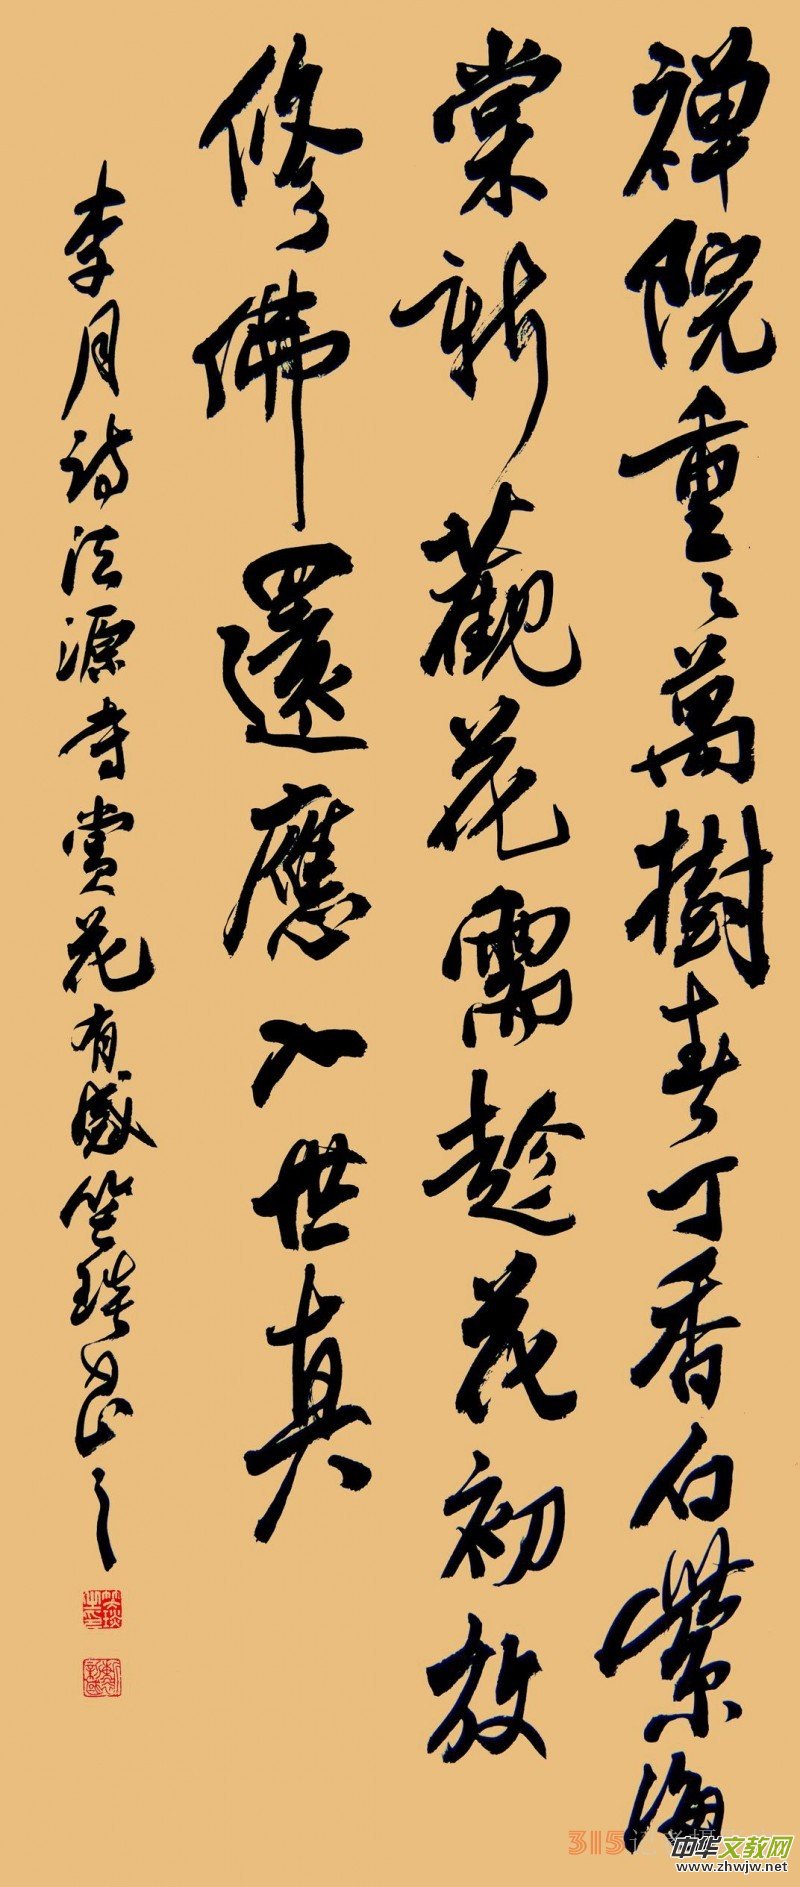 禅院重々萬樹春丁香白紫海
棠新觀花需趁花初放
修佛還應入世真
李月诗法源寺赏花有感
315记者摄
中华文教网
www.zhwjw.net